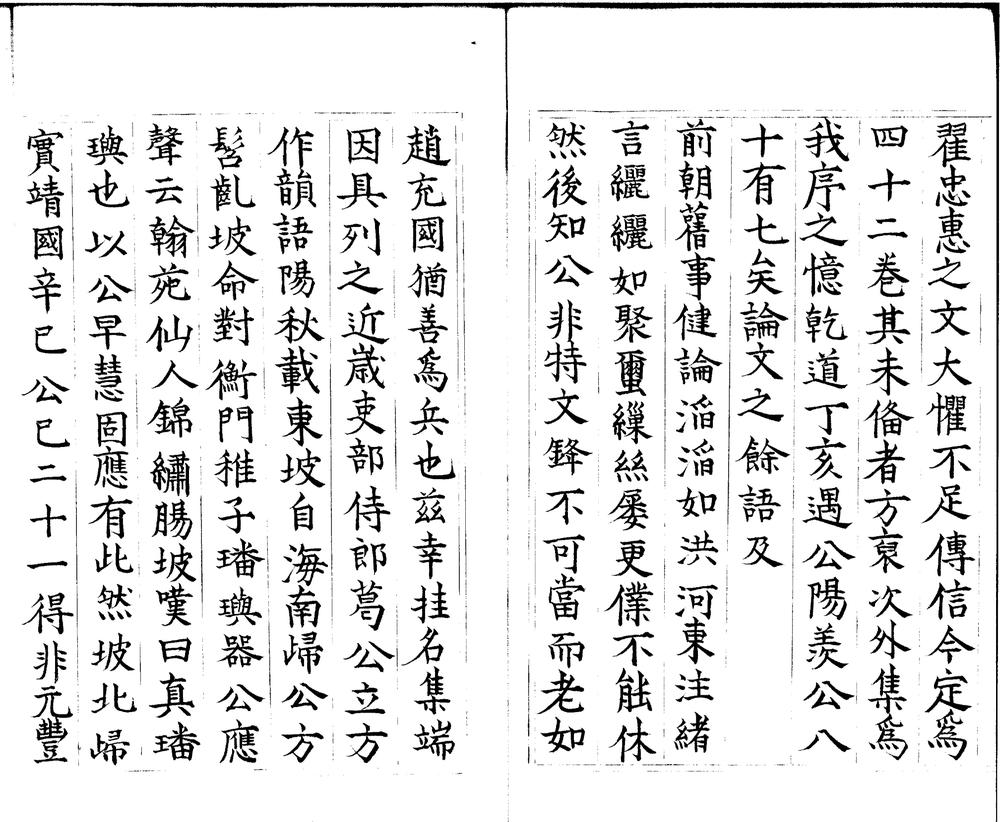 翟忠惠之文大懼不足傳信今定爲
四十二巻其未俻者方裒次外集爲
我序之憶乾道丁亥遇公陽羨公八
十有七矣論文之餘語及
前朝舊事健論滔滔如洪河東注緒
言纚纚如聚蠒繅絲屢更僕不能休
然後知公非特文鋒不可當而老如
趙充國猶善爲兵也兹幸挂名集端
因具列之近嵗吏部侍郎葛公立方
作韻語陽秋載東坡自海南歸公方
髫齓坡命對衡門稚子璠璵器公應
聲云翰苑仙人錦繡腸坡嘆曰真璠
璵也以公早慧固應有此然坡北歸
實靖國辛巳公已二十一得非元豐